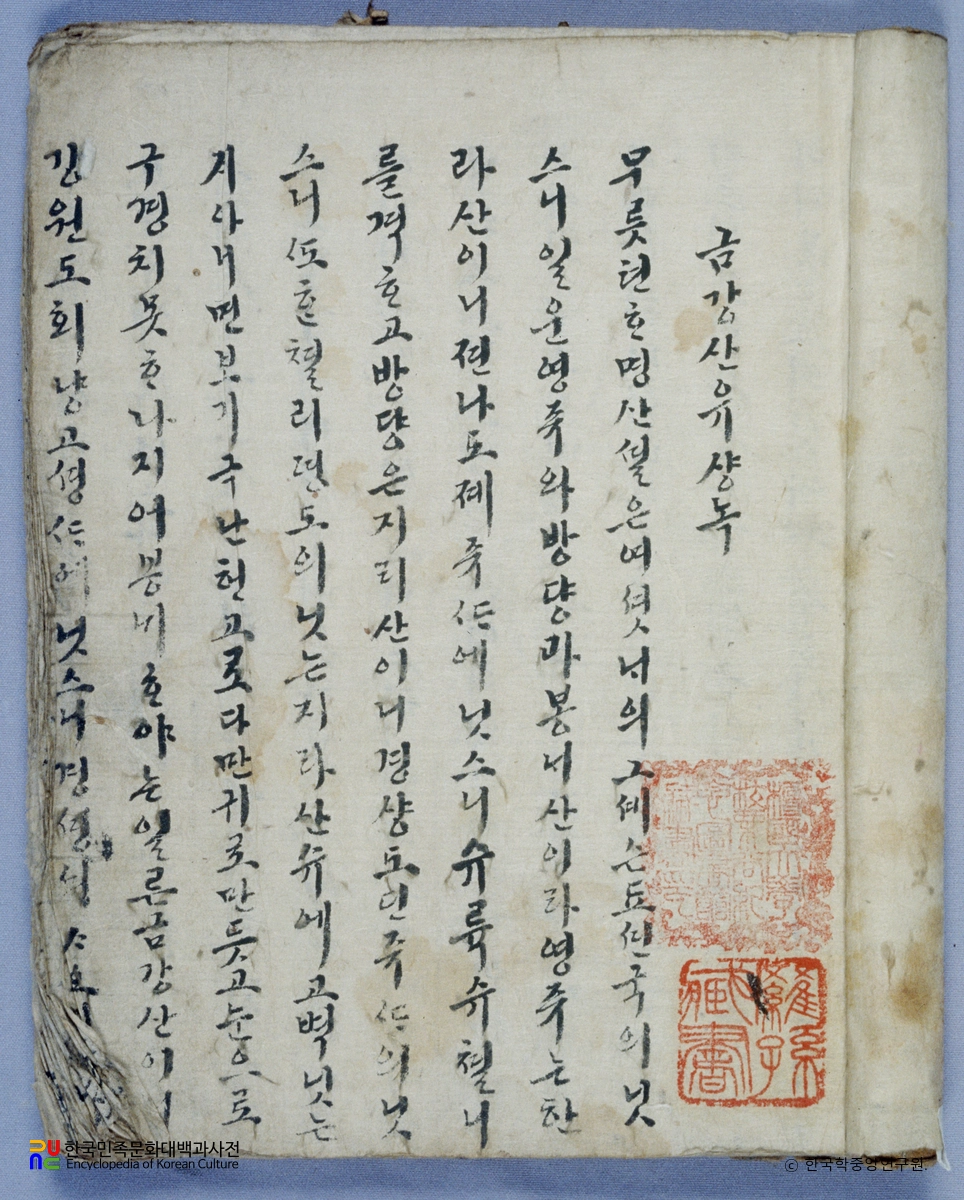 금강산유샹녹
무릇텬ᄒᆞ명산셜은여셧너의그셰흔됴션국의닛
스니일운영쥭와방댱과봉ᄂᆡ산이라영쥬는한
라산이니젼나도졔쥬ᄯᅡ에닛스니슈륙슈쳘니
를격ᄒᆞ고방댱은지리산이니경샹도진쥬ᄯᅡ의닛
스니ᄯᅩᄒᆞᆫ쳘리면도의닛는지라산유에고벽닛는
ᄌᆡ아니면보기극난헌고로다만귀로만듯고눈으로
구경치못ᄒᆞ나지어봉ᄂᆡᄒᆞ야는일른금강산이니
강원도회냥고셩ᄯᅡ에닛스니경셩의
한국민족문화대백과사전
Encyclopedia of Korean Culture
© 한국학중앙연구원.